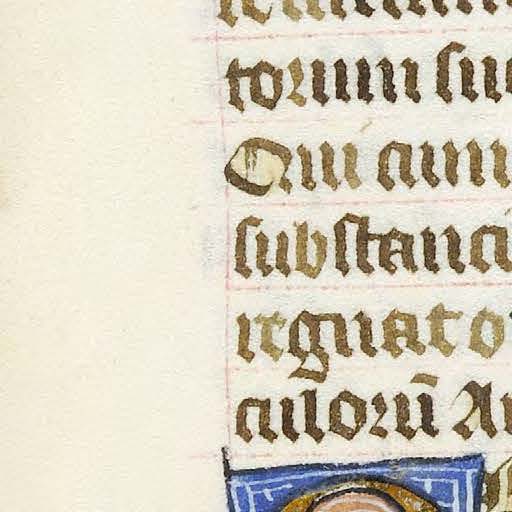 torum su
Qui cum
substanci
regnat o
culorū A